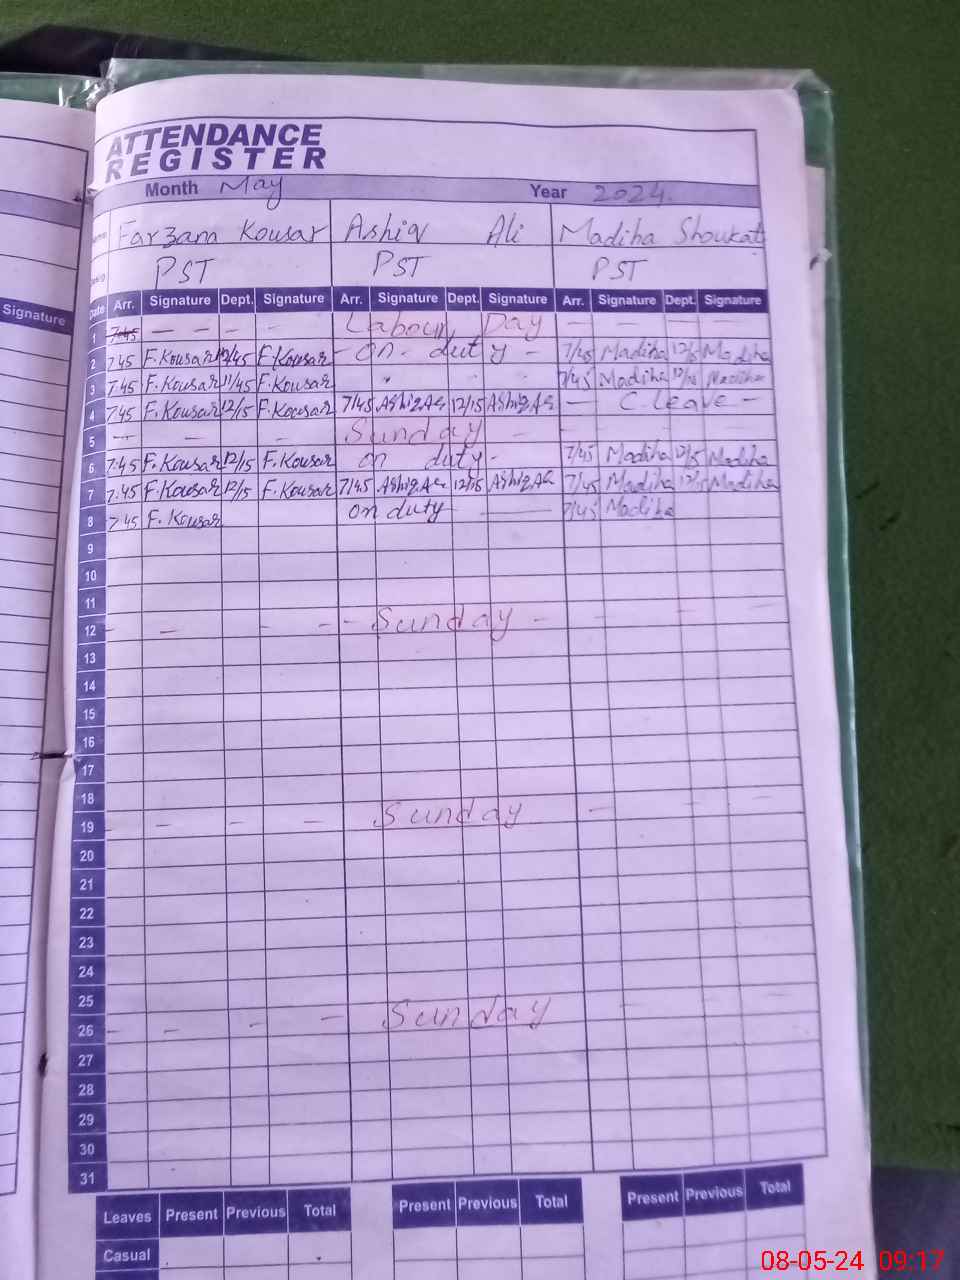 Signature
ATTENDANCE
REGISTER
Month May Year 2024
Farzana Kousar Ashiq Ali Madiha Shoukat
PST PST PST
Date Arr. Signature Dept. Signature Arr. Signature Dept. Signature Arr. Signature Dept. Signature
1 7:45 — — — - Labour Day — — — —
2 7:45 F.Kousar 12/45 F.Kousar - on - duty - 7/45 Madiha 12/15 Madiha
3 7:45 F.Kousar 11/45 F.Kousar " 7/45 Madiha 12/15 Madiha
4 7:45 F.Kousar 12/15 F.Kousar 7/45 AshiqAli 12/15 AshiqAli — C.leave —
5 -- - - Sunday — — — —
6 7:45 F.Kousar 12/15 F.Kousar on duty - 7/45 Madiha 12/15 Madiha
7 7:45 F.Kousar 12/15 F.Kousar 7/45 AshiqAli 12/15 AshiqAli 7/45 Madiha 12/15 Madiha
8 7:45 F.Kousar on duty — 7/45 Madiha
9
10
11
12 - — - - - Sunday - - - - -
13
14
15
16
17
18
19 - - - - Sunday — - -
20
21
22
23
24
25
26 - - - - Sunday - - -
27
28
29
30
31
Leaves Present Previous Total Present Previous Total Present Previous Total
Casual
08-05-24 09:17